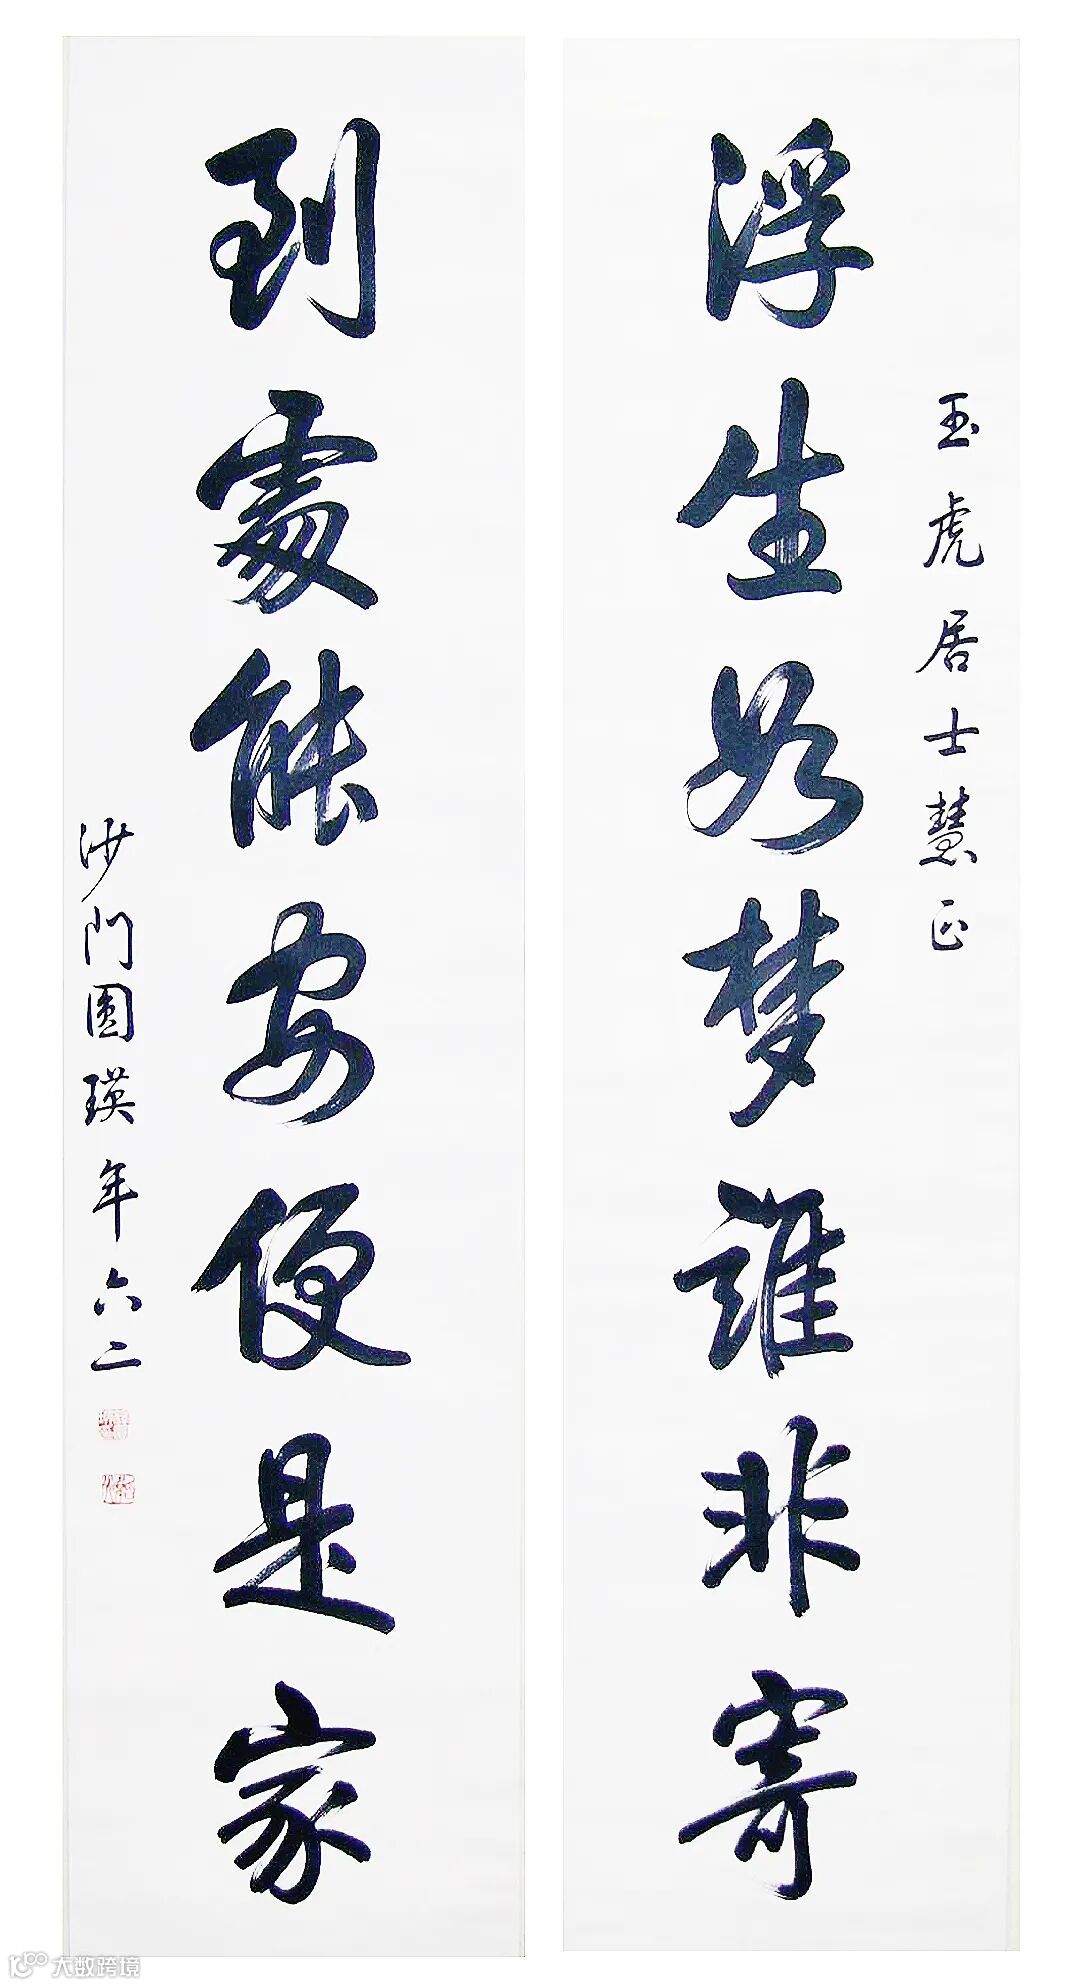 玉虎居士慧正
浮生若梦誰非寄
到處能安便是家
沙門圓瑛年六二
大数跨境